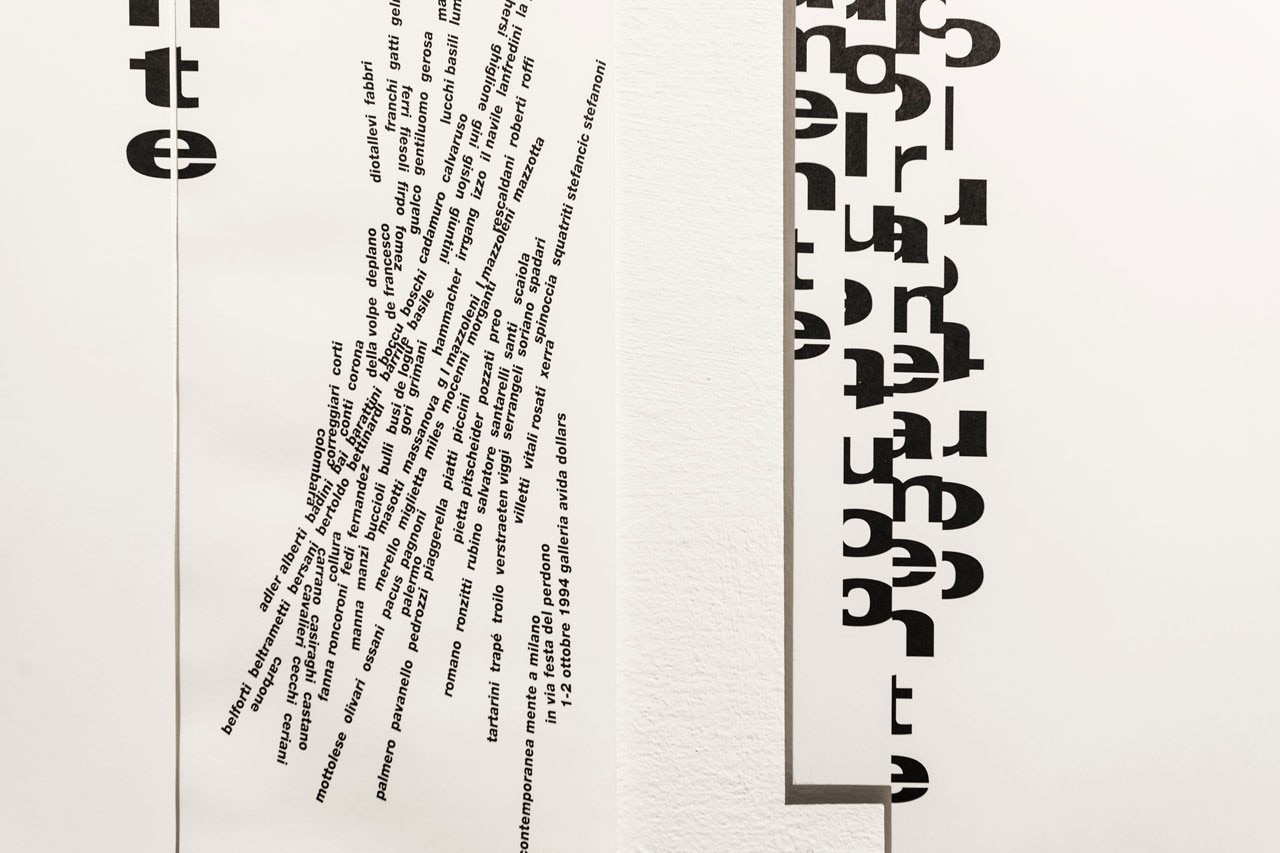 te
diotallevi fabbri
franchi gatti
ferri fiesoli firpo fomez
gualco gentiluomo gerosa
lucchi basili
ghiglione gini gislon giuntini
della volpe deplano
de francesco
boccu boschi cadamuro calvaruso
hammacher irrgang izzo il navile lanfredini la
rescaldani roberti roffi
correggiari corti
conti corona
colombara
adler alberti badini bai barattini barrile basile
belforti beltrametti bersani bertoldo bettinardi
busi de logu
gori grimani
carbone
carrano casiraghi castano
cavalieri cecchi ceriani
collura
fanna roncoroni fedi fernandez
manna manzi buccioli bulli
masotti massanova g l mazzoleni l mazzoleni mazzotta
mottolese olivari ossani pacus pagnoni
merello miglietta miles mocenni morganti
palermo
palmero pavanello pedrozzi piaggerella piatti piccini
pietta pitscheider pozzati preo
romano ronzitti rubino salvatore santarelli santi scaiola
tartarini trapé troilo verstraeten viggi serrangeli soriano spadari
villetti vitali rosati xerra
spinoccia squatriti stefancic stefanoni
contemporanea mente a milano
in via festa del perdono
1-2 ottobre 1994 galleria avida dollars